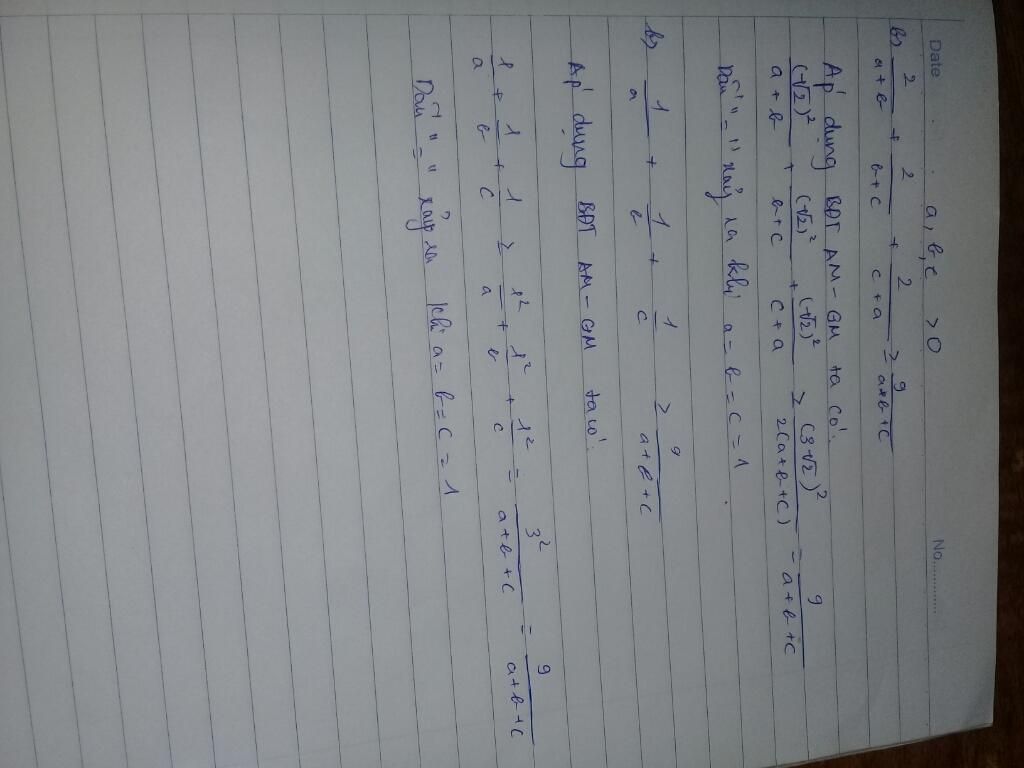 Date No.
a, b, c > 0
b) 2/(a+b) + 2/(b+c) + 2/(c+a) ≥ 9/(a+b+c)
Áp dụng BĐT AM-GM ta có:
(√2)²/(a+b) + (√2)²/(b+c) + (√2)²/(c+a) ≥ (3√2)²/(2(a+b+c)) = 9/(a+b+c)
Dấu "=" xảy ra khi a = b = c = 1
b) 1/a + 1/b + 1/c ≥ 9/(a+b+c)
Áp dụng BĐT AM-GM ta có:
1/a + 1/b + 1/c ≥ 1²/a + 1²/b + 1²/c = 3²/(a+b+c) = 9/(a+b+c)
Dấu "=" xảy ra khi a = b = c = 1